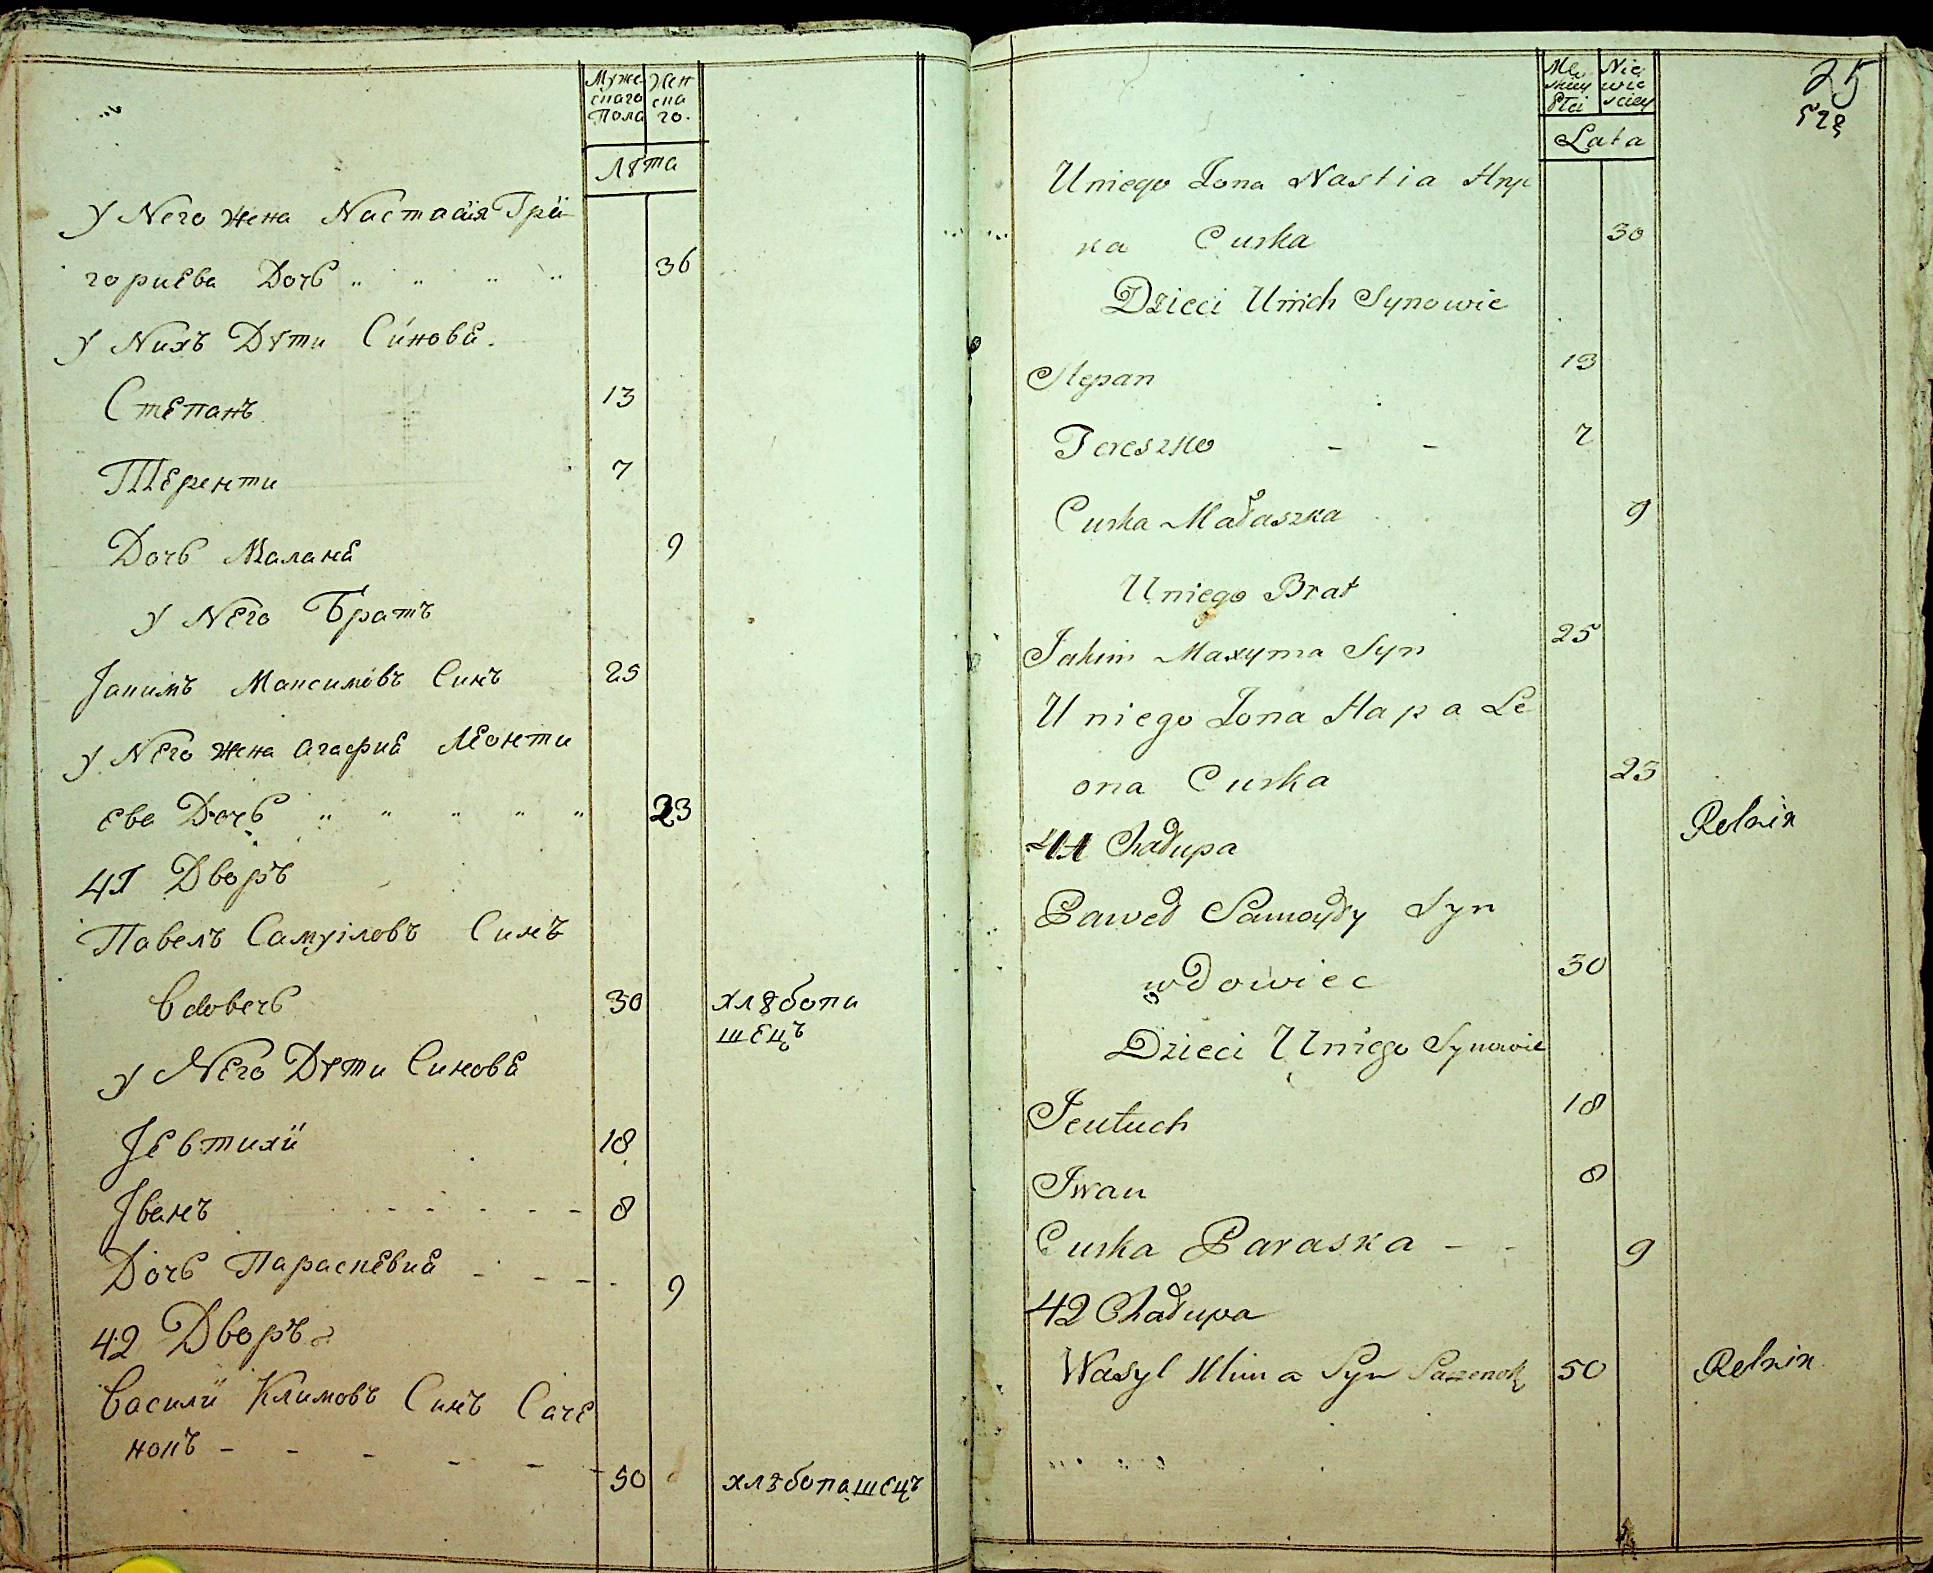 Муже
скаго
Пола
Жен
ска
го.
Лѣта
У Него жена Настасія Грі
горіева Дочь 36
У Нихъ Дѣти Синове.
Степанъ 13
Теренти 7
Дочь Малане 9
У Него Братъ
Іакимъ Максимовъ Синъ 25
У Него жена Агафие Леонти
ева Дочь 23
41 Дворъ
Павелъ Самуіловъ Синъ
вдовець 30 хлѣбопа
шецъ
У Него Дѣти Синове
Іевтихій 18
Іванъ 8
Дочь Параскевие 9
42 Дворъ
Василій Климовъ Синъ Саче
нокъ 50 хлѣбопашецъ
25
528
Mę
skiey
Płci
Nie
wie
sciey
Lata
Uniego Żona Nastia Hry
ka Curka 30
Dzieci Unich Synowie
Stepan 13
Tereszko 7
Curka Małaszka 9
Uniego Brat
Jakim Maxyma Syn 25
Uniego Żona Hapa Le
ona Curka 23
41 Chałupa Rolnik
Paweł Samoyły Syn
wdowiec 30
Dzieci Uniego Synowie
Jeutuch 18
Iwan 8
Curka Paraska 9
42 Chałupa
Wasyl Klima Syn Saczenok 50 Rolnik